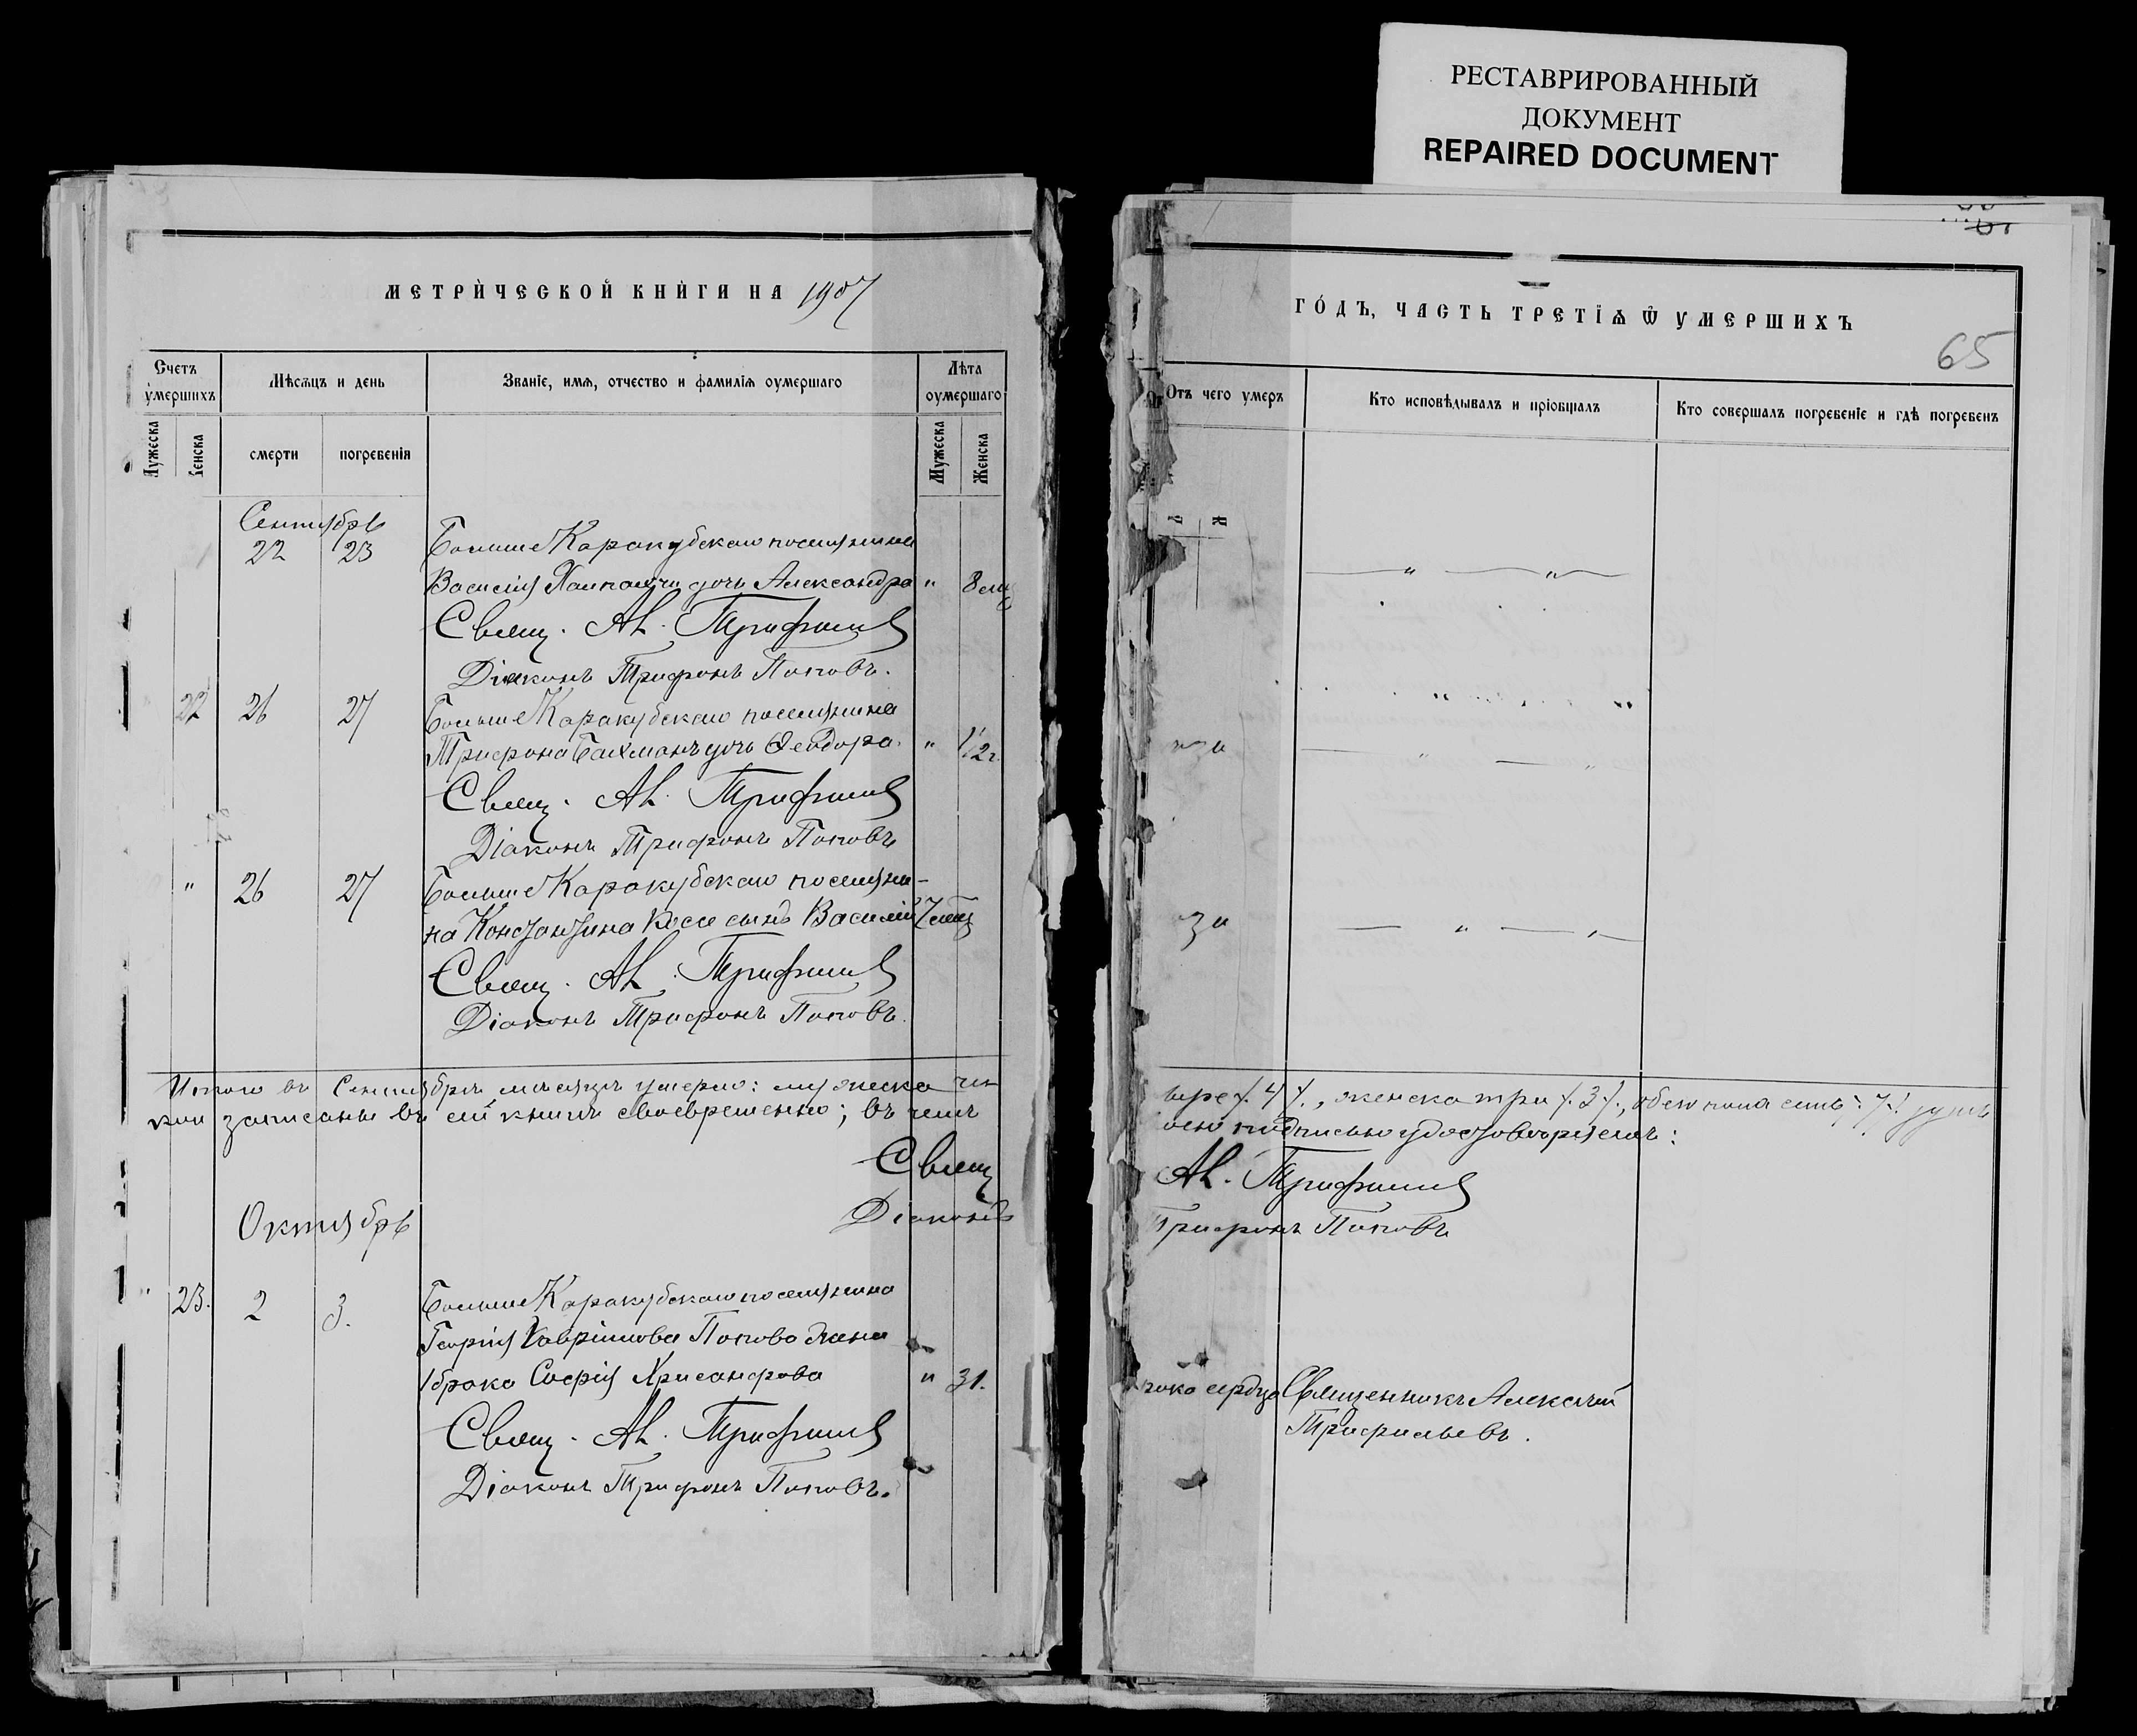 РЕСТАВРИРОВАННЫЙ
ДОКУМЕНТ
REPAIRED DOCUMENT
МЕТРИЧЕСКОЙ КНИГИ НА 1907
Счетъ умершихъ
Мѣсяцъ и день
Званіе, имя, отчество и фамилія оумершаго
Лѣта оумершаго
Мужеска
Женска
смерти
погребенія
Мужеска
Женска
Сентябрь
22 23 Больше Каракубскаго поселянина
Василія дочь Александра " 8 мц
Свящ. Ал. Трифильев
Діаконъ Трифонъ Поповъ.
22 26 27 Больше Каракубскаго поселянина
Трифона Бахманъ дочь Ѳеодора. " 1/2 г.
Свящ. Ал. Трифильев
Діаконъ Трифонъ Поповъ
" 26 27 Больше Каракубскаго поселяни-
на Константина Коси сынъ Василій 7 мц
Свящ. Ал. Трифильев
Діаконъ Трифонъ Поповъ.
Итого въ Сентябрѣ мѣсяцѣ умерло: мужеска че-
кои записаны въ сей книгѣ своевременно; въ чемъ
Свящ
Діаконъ
Октябрь
23. 2 3. Больше Каракубскаго поселянина
Георгія Гавріилова Попова жена
1 брака Софія Хрисанфова " 31.
Свящ. Ал. Трифильев
Діаконъ Трифонъ Поповъ.
ГОДЪ, ЧАСТЬ ТРЕТІЯ Ѿ УМЕРШИХЪ
65
Отъ чего умеръ
Кто исповѣдывалъ и пріобщалъ
Кто совершалъ погребеніе и гдѣ погребенъ
тыре /. 4 /., женска три /. 3 /., обего пола семь /. 7 /. душъ
подписью удостовѣряемъ:
Ал. Трифильев
Трифонъ Поповъ
сердца Священникъ Алексѣй
Трифильевъ.